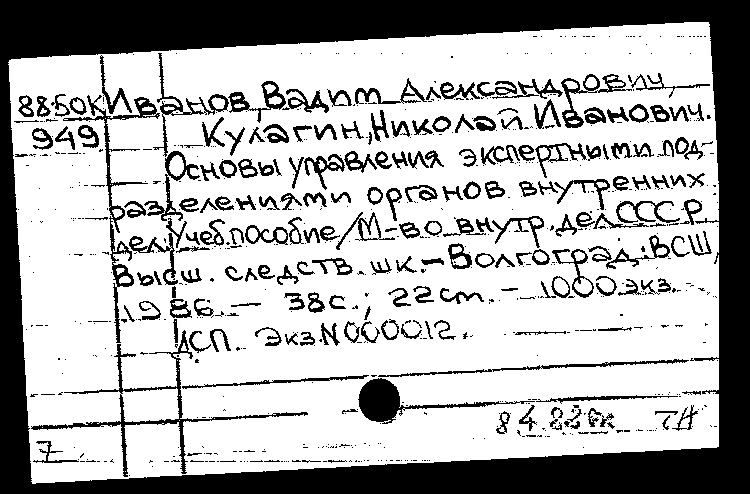 88-50К Иванов, Вадим Александрович,
949 Кулагин, Николай Иванович.
Основы управления экспертными под-
разделениями органов внутренних
дел: Учеб. пособие / М-во внутр. дел СССР
Высш. следств. шк. - Волгоград: ВСШ,
1986. - 38 с.; 22 см. - 1000 экз.
ДСП. Экз. N 000012.
7